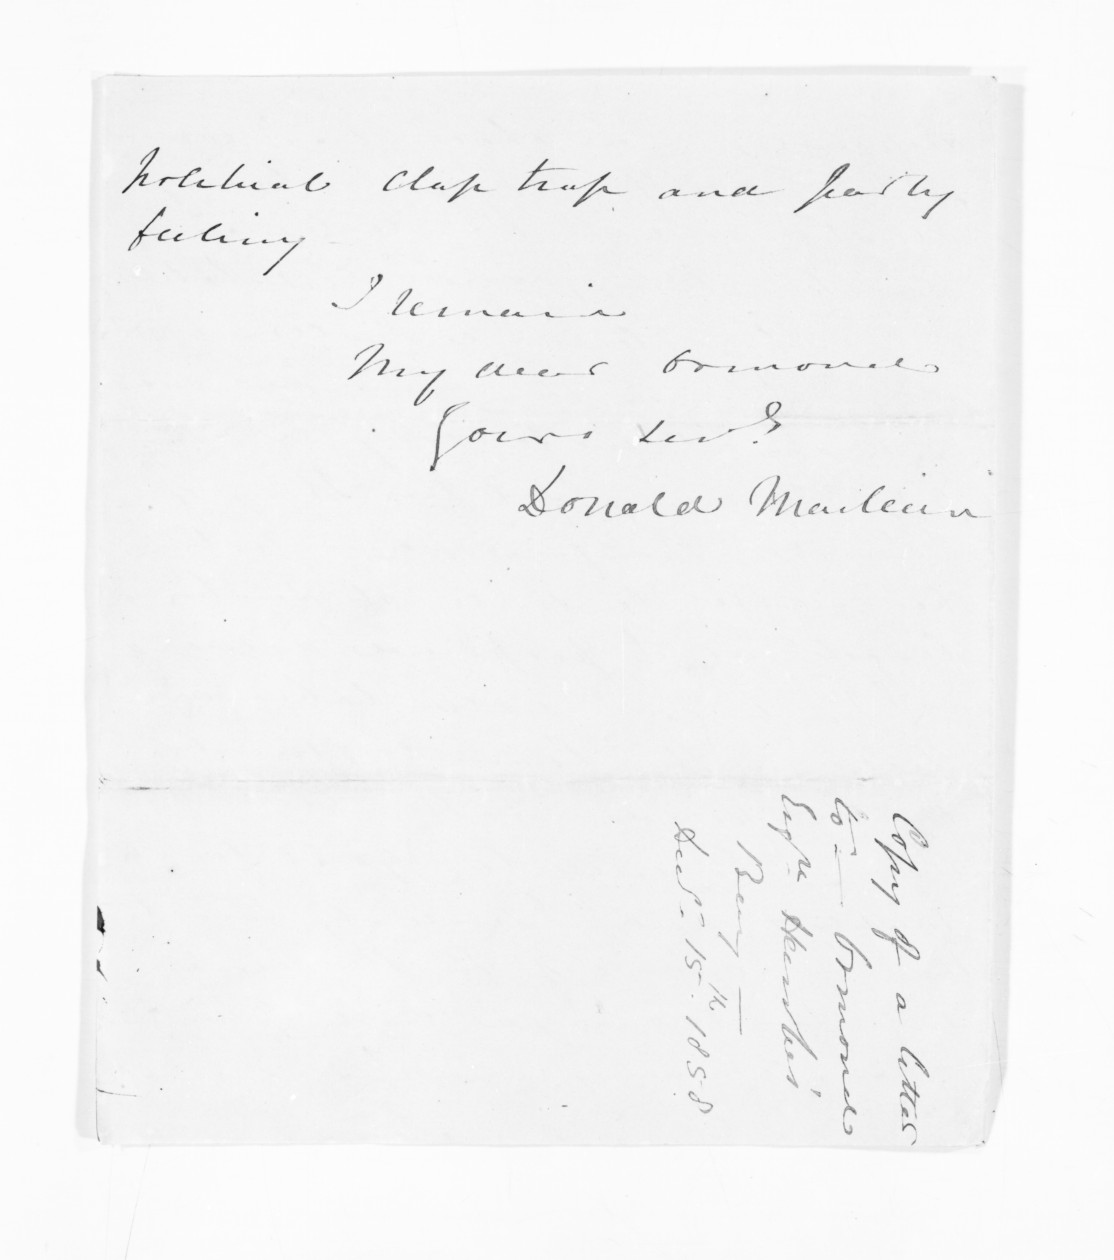 political clap trap and party
feeling
I remain
My dear Ormond
Yours sinc.ly
Donald McLean
Copy of a letter
to Ormond
Esqre Hawkes'
Bay
Decr. 15th. 1858